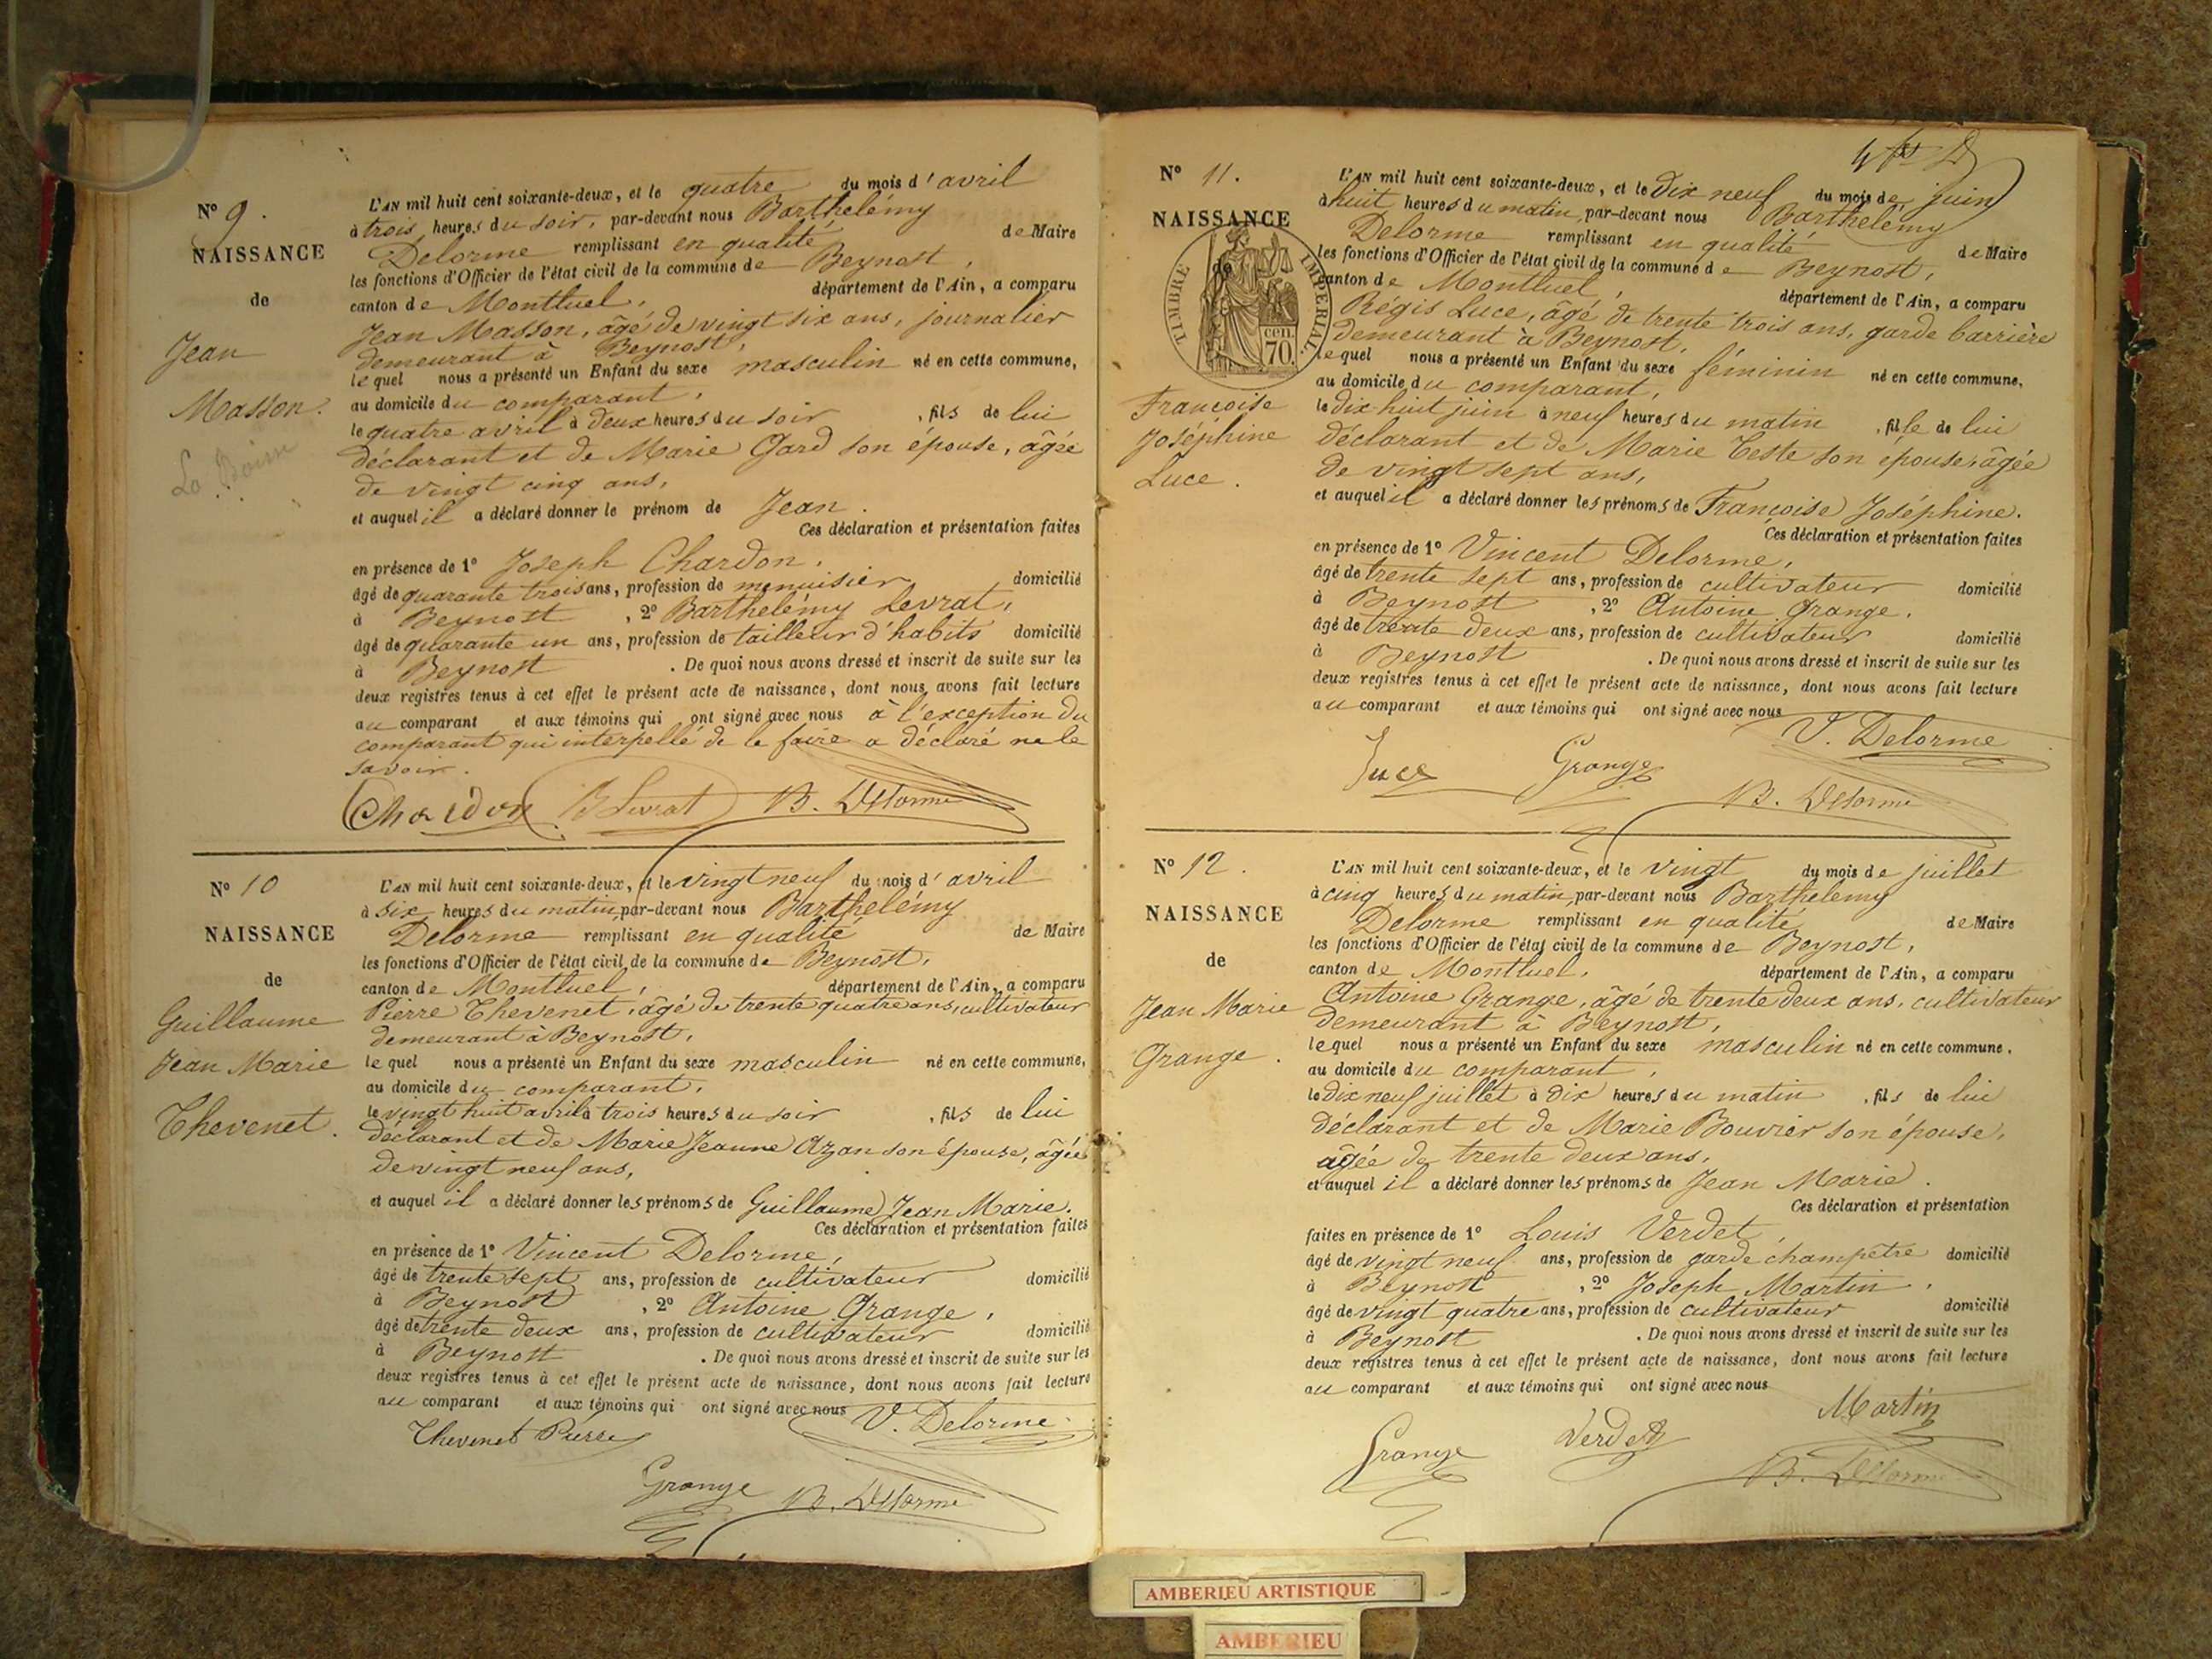 N° 9.
NAISSANCE
de
Jean
Masson.
L'AN mil huit cent soixante-deux, et le quatre du mois d'avril
à trois heures du soir, par-devant nous Barthelémy
Delorme remplissant en qualité de Maire
les fonctions d'Officier de l'état civil de la commune de Beynost,
canton de Montluel, département de l'Ain, a comparu
Jean Masson, âgé de vingt six ans, journalier
demeurant à Beynost,
lequel nous a présenté un Enfant du sexe masculin né en cette commune,
au domicile du comparant,
le quatre avril à deux heures du soir, fils de lui
déclarant et de Marie Gard son épouse, âgée
de vingt cinq ans,
et auquel il a déclaré donner le prénom de Jean.
Ces déclaration et présentation faites
en présence de 1° Joseph Chardon,
âgé de quarante trois ans, profession de menuisier domicilié
à Beynost, 2° Barthelémy Levrat,
âgé de quarante un ans, profession de tailleur d'habits domicilié
à Beynost. De quoi nous avons dressé et inscrit de suite sur les
deux registres tenus à cet effet le présent acte de naissance, dont nous avons fait lecture
au comparant et aux témoins qui ont signé avec nous à l'exception du
comparant qui interpellé de le faire a déclaré ne le
savoir.
Chardon B Levrat B. Delorme
N° 10
NAISSANCE
de
Guillaume
Jean Marie
Thevenet.
L'AN mil huit cent soixante-deux, et le vingt neuf du mois d'avril
à six heures du matin, par-devant nous Barthelémy
Delorme remplissant en qualité de Maire
les fonctions d'Officier de l'état civil de la commune de Beynost,
canton de Montluel, département de l'Ain, a comparu
Pierre Thevenet, âgé de trente quatre ans, cultivateur
demeurant à Beynost,
lequel nous a présenté un Enfant du sexe masculin né en cette commune,
au domicile du comparant,
le vingt huit avril à trois heures du soir, fils de lui
déclarant et de Marie Jeanne Azan son épouse, âgée
de vingt neuf ans,
et auquel il a déclaré donner les prénoms de Guillaume Jean Marie.
Ces déclaration et présentation faites
en présence de 1° Vincent Delorme,
âgé de trente sept ans, profession de cultivateur domicilié
à Beynost, 2° Antoine Grange,
âgé de trente deux ans, profession de cultivateur domicilié
à Beynost. De quoi nous avons dressé et inscrit de suite sur les
deux registres tenus à cet effet le présent acte de naissance, dont nous avons fait lecture
au comparant et aux témoins qui ont signé avec nous V. Delorme
Thevenet Pierre
Grange B. Delorme
N° 11.
NAISSANCE
de
TIMBRE IMPERIAL
cen. 70.
Françoise
Joséphine
Luce.
L'AN mil huit cent soixante-deux, et le dix neuf du mois de juin
à huit heures du matin, par-devant nous Barthelémy
Delorme remplissant en qualité de Maire
les fonctions d'Officier de l'état civil de la commune de Beynost,
canton de Montluel, département de l'Ain, a comparu
Régis Luce, âgé de trente trois ans, garde barrière
demeurant à Beynost,
lequel nous a présenté un Enfant du sexe féminin né en cette commune,
au domicile du comparant,
le dix-huit juin à neuf heures du matin, fille de lui
déclarant et de Marie Teste son épouse, âgée
de vingt sept ans,
et auquel il a déclaré donner les prénoms de Françoise Joséphine.
Ces déclaration et présentation faites
en présence de 1° Vincent Delorme,
âgé de trente sept ans, profession de cultivateur domicilié
à Beynost, 2° Antoine Grange,
âgé de trente deux ans, profession de cultivateur domicilié
à Beynost. De quoi nous avons dressé et inscrit de suite sur les
deux registres tenus à cet effet le présent acte de naissance, dont nous avons fait lecture
au comparant et aux témoins qui ont signé avec nous
V. Delorme
Luce Grange
B. Delorme
N° 12.
NAISSANCE
de
Jean Marie
Grange.
L'AN mil huit cent soixante-deux, et le vingt du mois de juillet
à cinq heures du matin, par-devant nous Barthelemy
Delorme remplissant en qualité de Maire
les fonctions d'Officier de l'état civil de la commune de Beynost,
canton de Montluel, département de l'Ain, a comparu
Antoine Grange, âgé de trente deux ans, cultivateur
demeurant à Beynost,
lequel nous a présenté un Enfant du sexe masculin né en cette commune,
au domicile du comparant,
le dix neuf juillet à dix heures du matin, fils de lui
déclarant et de Marie Bouvier son épouse,
âgée de trente deux ans,
et auquel il a déclaré donner les prénoms de Jean Marie.
Ces déclaration et présentation
faites en présence de 1° Louis Verdet,
âgé de vingt neuf ans, profession de garde champêtre domicilié
à Beynost, 2° Joseph Martin,
âgé de vingt quatre ans, profession de cultivateur domicilié
à Beynost. De quoi nous avons dressé et inscrit de suite sur les
deux registres tenus à cet effet le présent acte de naissance, dont nous avons fait lecture
au comparant et aux témoins qui ont signé avec nous
Martin
Grange Verdet
B. Delorme
AMBERIEU ARTISTIQUE
AMBERIEU